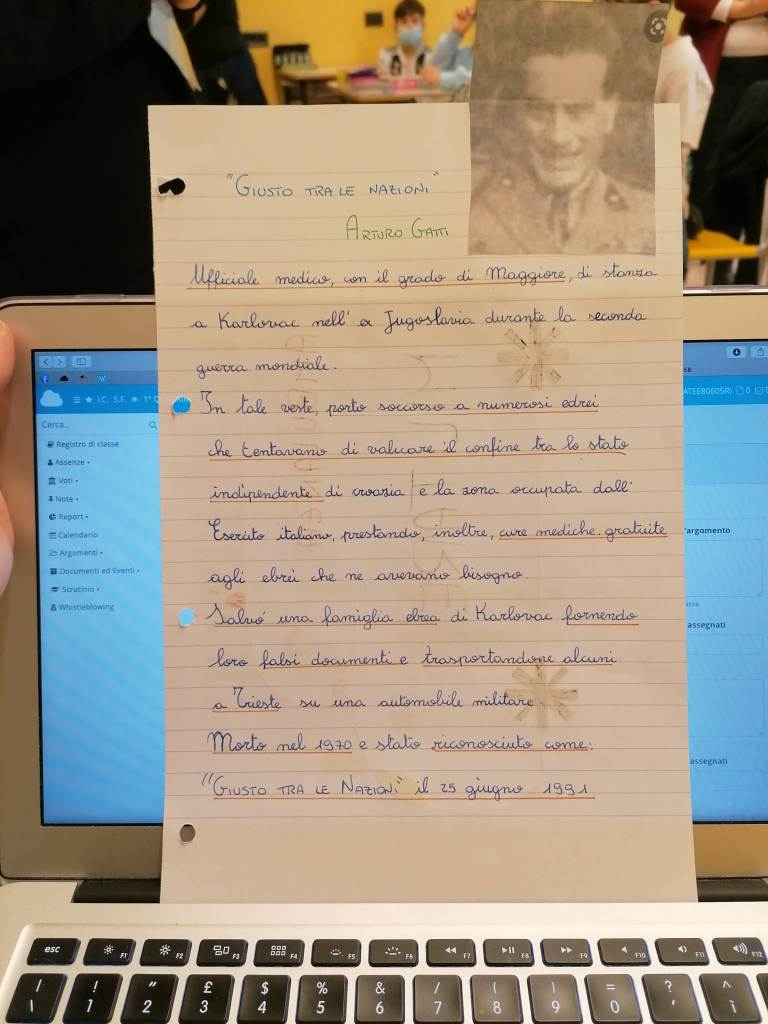 "GIUSTO TRA LE NAZIONI"
ARTURO GATTI
Ufficiale medico, con il grado di Maggiore, di stanza
a Karlovac nell' ex Jugoslavia durante la seconda
guerra mondiale.
In tale veste, porto soccorso a numerosi edrei
che tentavano di valicare il confine tra lo stato
indipendente di croazia e la zona occupata dall'
Esercito italiano, prestando, inoltre, cure mediche gratuite
agli ebrei che ne avevano bisogno.
Salvó una famiglia ebrea di Karlovac fornendo
loro falsi documenti e trasportandone alcuni
a Trieste su una automobile militare
Morto nel 1970 e stato riconosciuto come:
"GIUSTO TRA LE NAZIONI" il 25 giugno 1991
I.C. S.F. 1°
Cerca...
Registro di classe
Assenze
Voti
Note
Report
Calendario
Argomenti
Documenti ed Eventi
Scrutinio
Whistleblowing
ATEE80605R) 0
'argomento
assegnati
assegnati
esc F1 F2 F3 F4 F5 F6 F7 F8 F9 F10 F11 F12
/ ! " £ $ % & / ( ) = ? ^
\ 1 2 3 4 5 6 7 8 9 0 ' ì